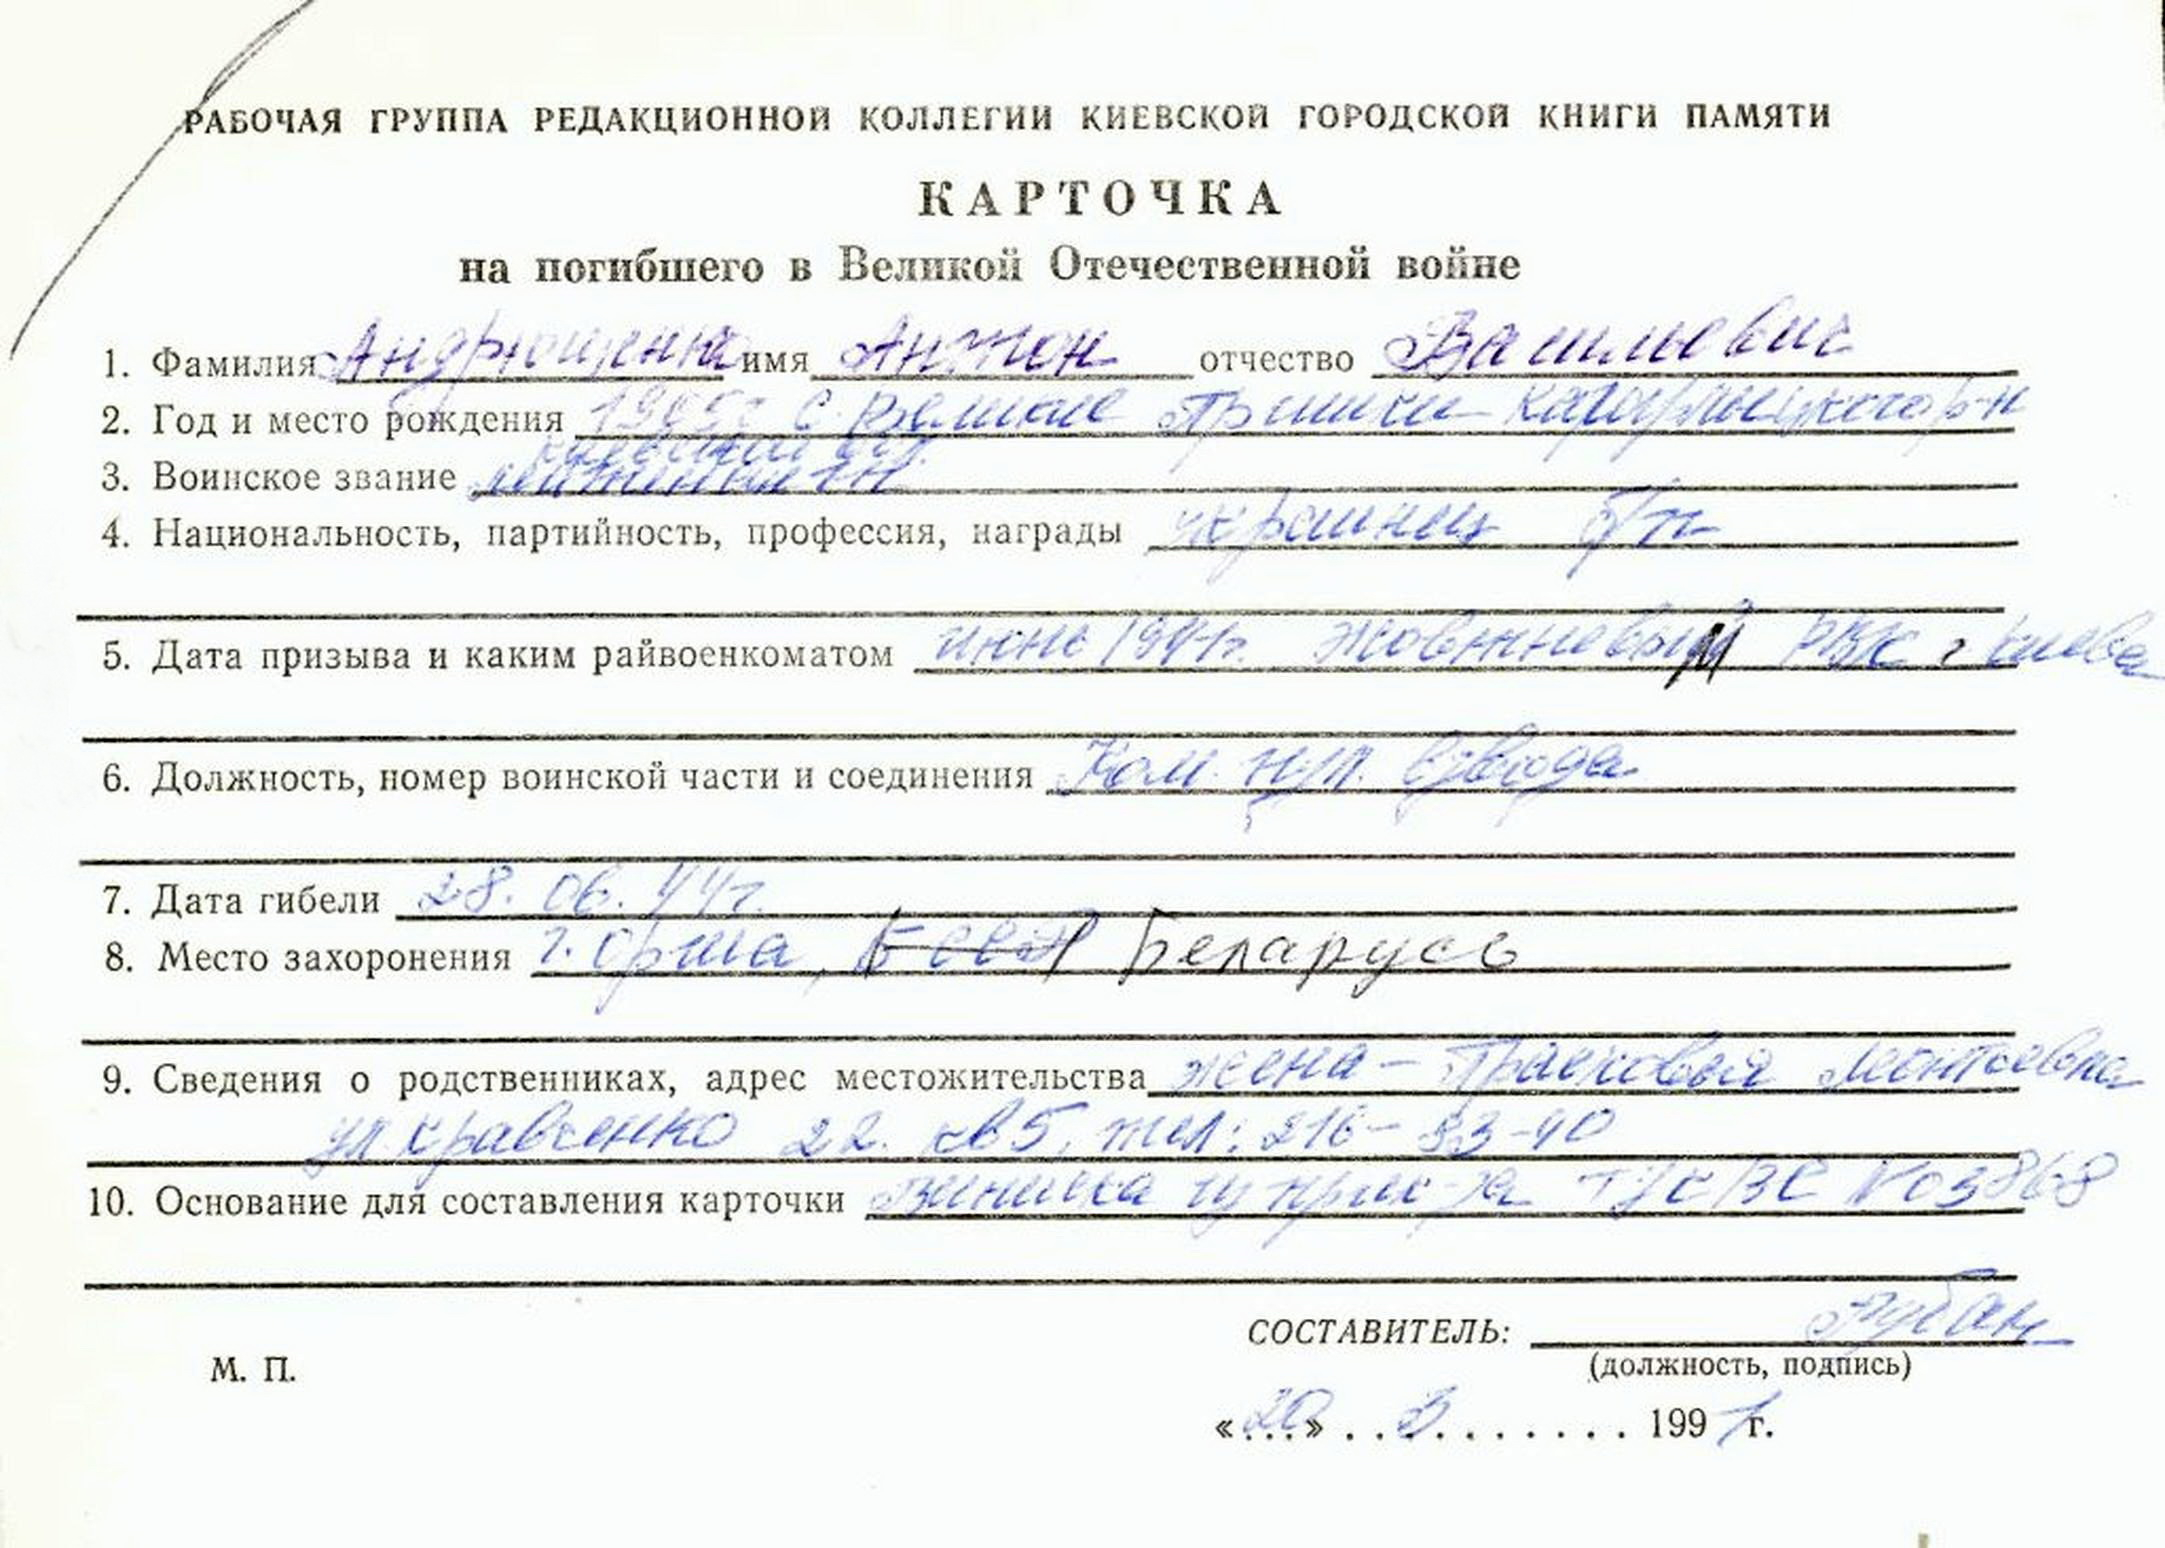 РАБОЧАЯ ГРУППА РЕДАКЦИОННОЙ КОЛЛЕГИИ КИЕВСКОЙ ГОРОДСКОЙ КНИГИ ПАМЯТИ
КАРТОЧКА
на погибшего в Великой Отечественной войне
1. Фамилия Андрющенко имя Антон отчество Васильевич
2. Год и место рождения с Великие Пришки Кагарлыцкого р-н
Киевской
3. Воинское звание лейтенант
4. Национальность, партийность, профессия, награды украинец б/п
5. Дата призыва и каким райвоенкоматом 1941г. Жовтневым РВК г Киева
6. Должность, номер воинской части и соединения Ком. взвода
7. Дата гибели 28. 06. 44г.
8. Место захоронения г. Орша, БССР Беларусь
9. Сведения о родственниках, адрес местожительства жена - Прасковья Леонтьевна
ул Кравченко 22. кв 5, тел: 216-83-40
10. Основание для составления карточки Выписка из N03868
СОСТАВИТЕЛЬ: Рубан
(должность, подпись)
М. П.
«20» 3 1991г.